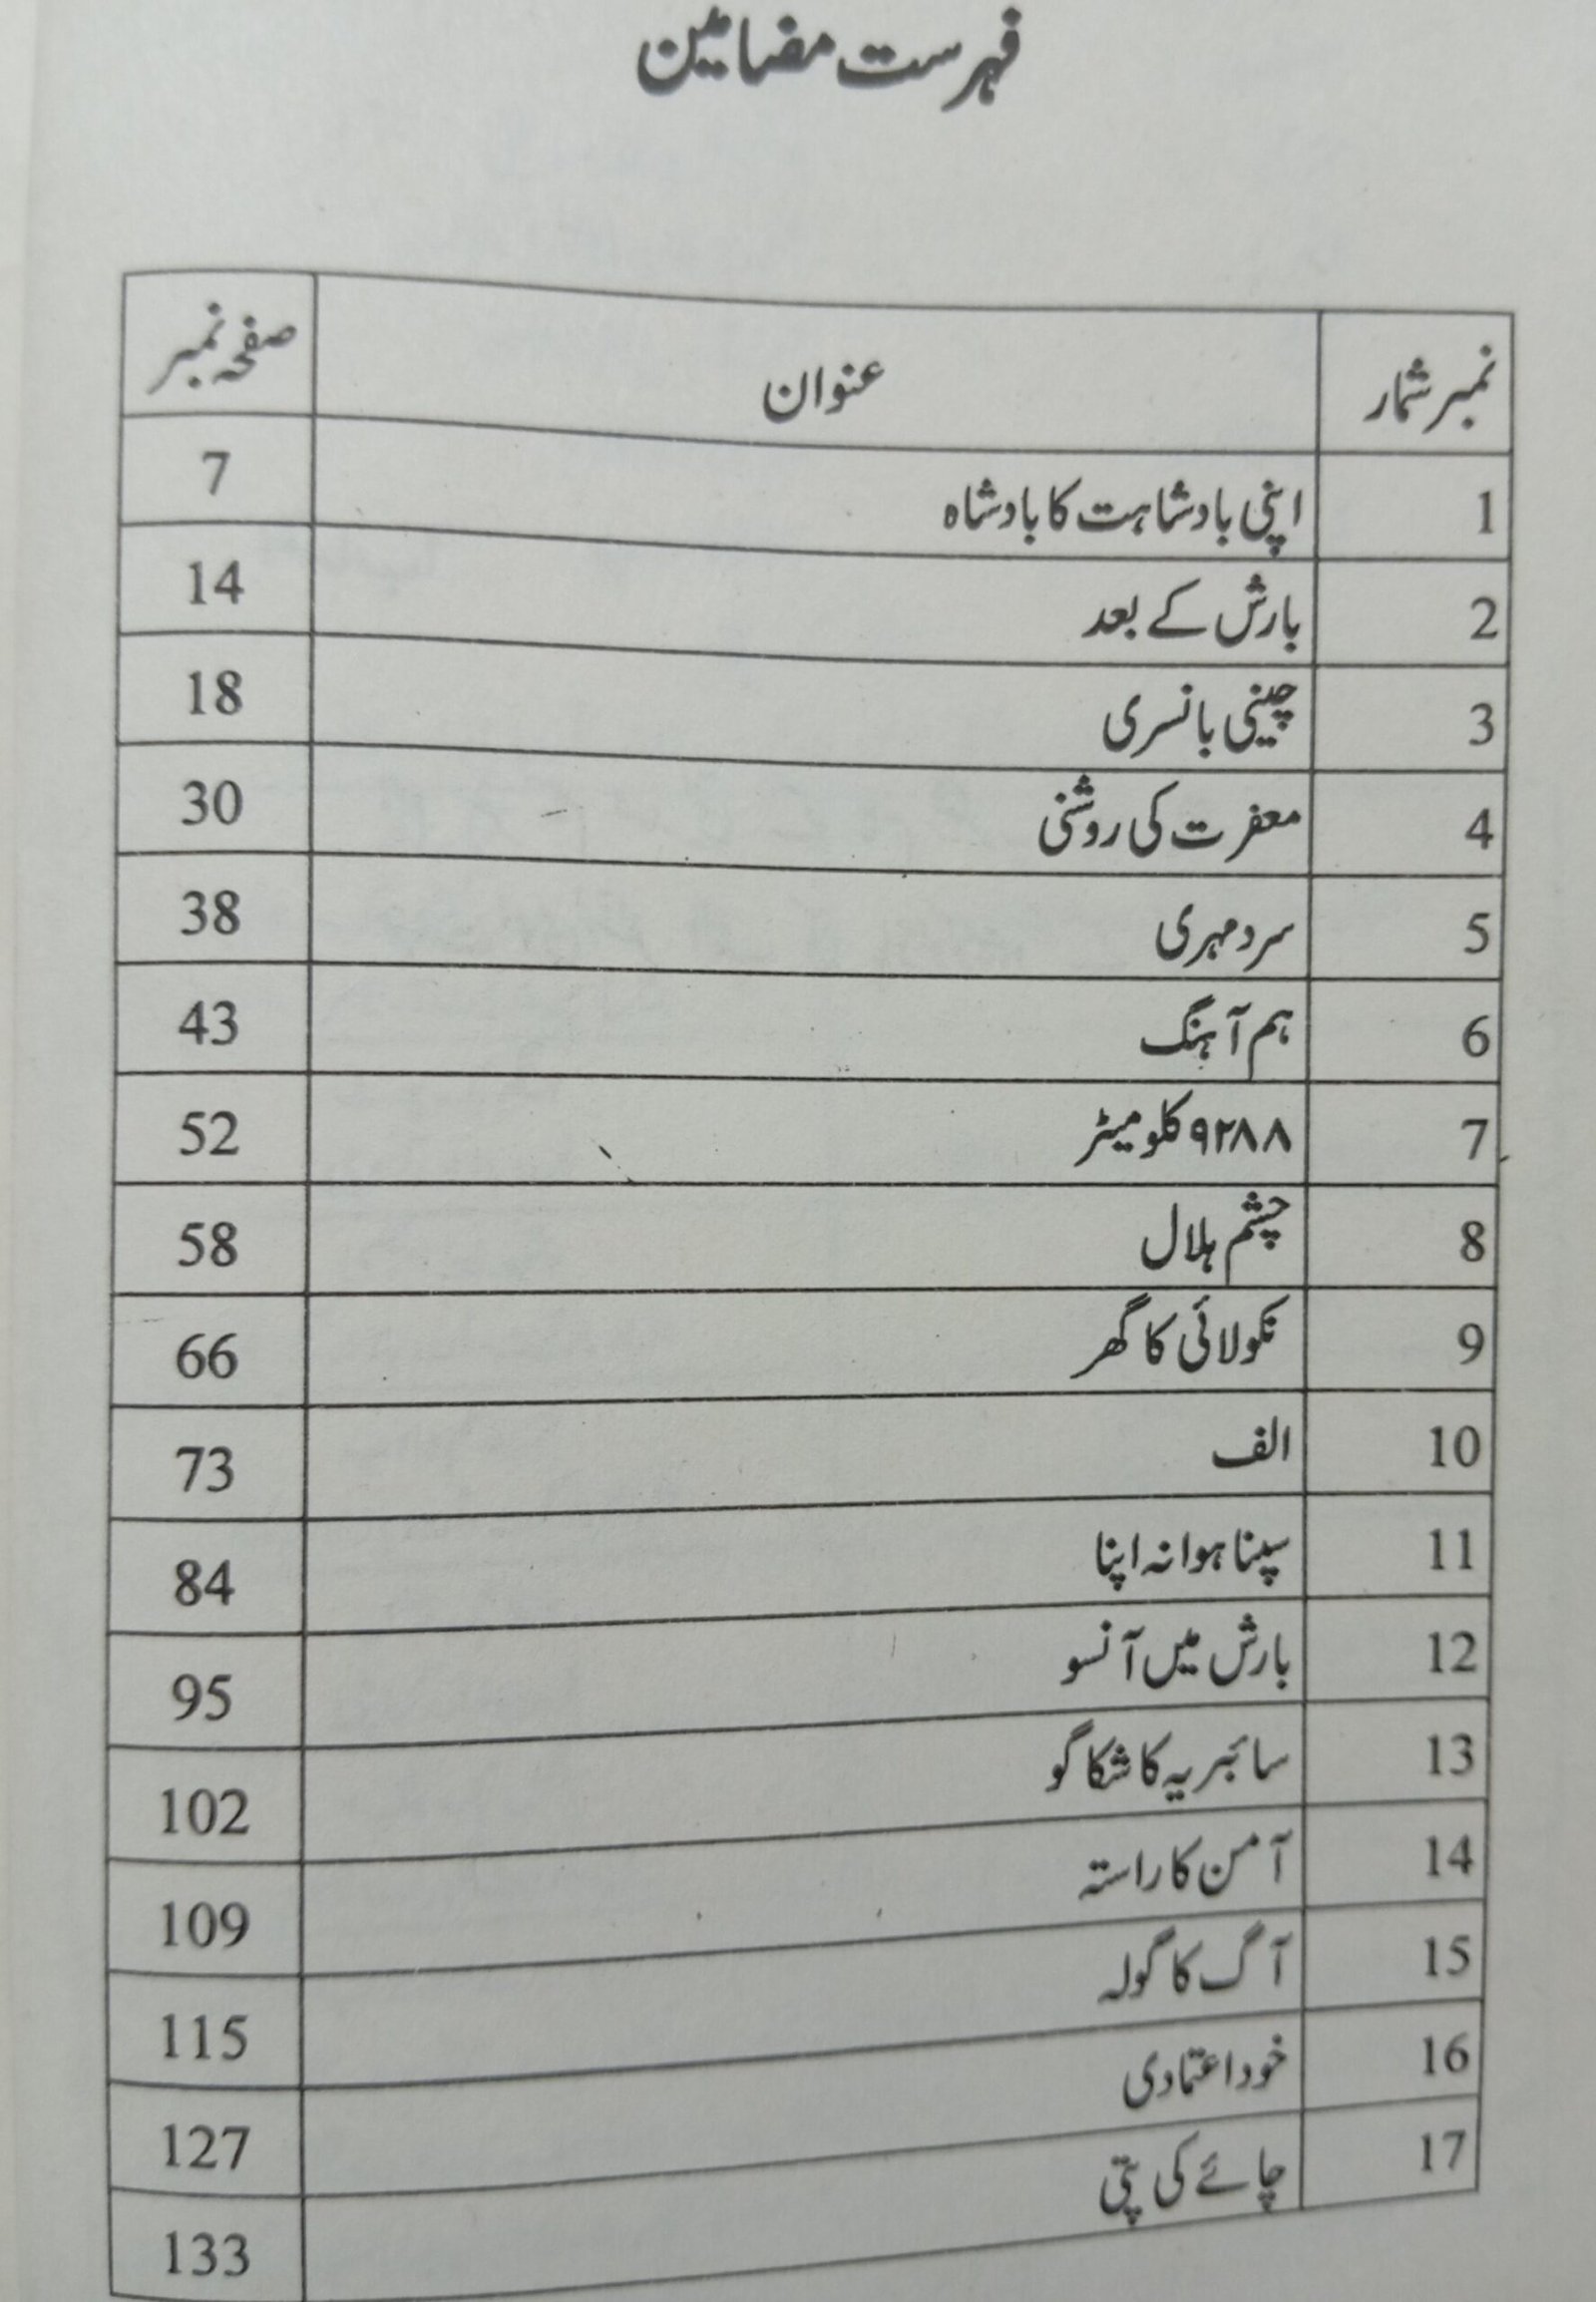 فہرست مضامین
نمبر شمار عنوان صفحہ نمبر
1 اپنی بادشاہت کا بادشاہ 7
2 بارش کے بعد 14
3 چینی بانسری 18
4 معفرت کی روشنی 30
5 سرد مہری 38
6 ہم آہنگ 43
7 ۹۲۸۸ کلومیٹر 52
8 چشم ہلال 58
9 نکولائی کا گھر 66
10 الف 73
11 سپنا ہوا نہ اپنا 84
12 بارش میں آنسو 95
13 سائبریہ کا شکاگو 102
14 آمن کا راستہ 109
15 آگ کا گولہ 115
16 خود اعتمادی 127
17 چائے کی پتی 133